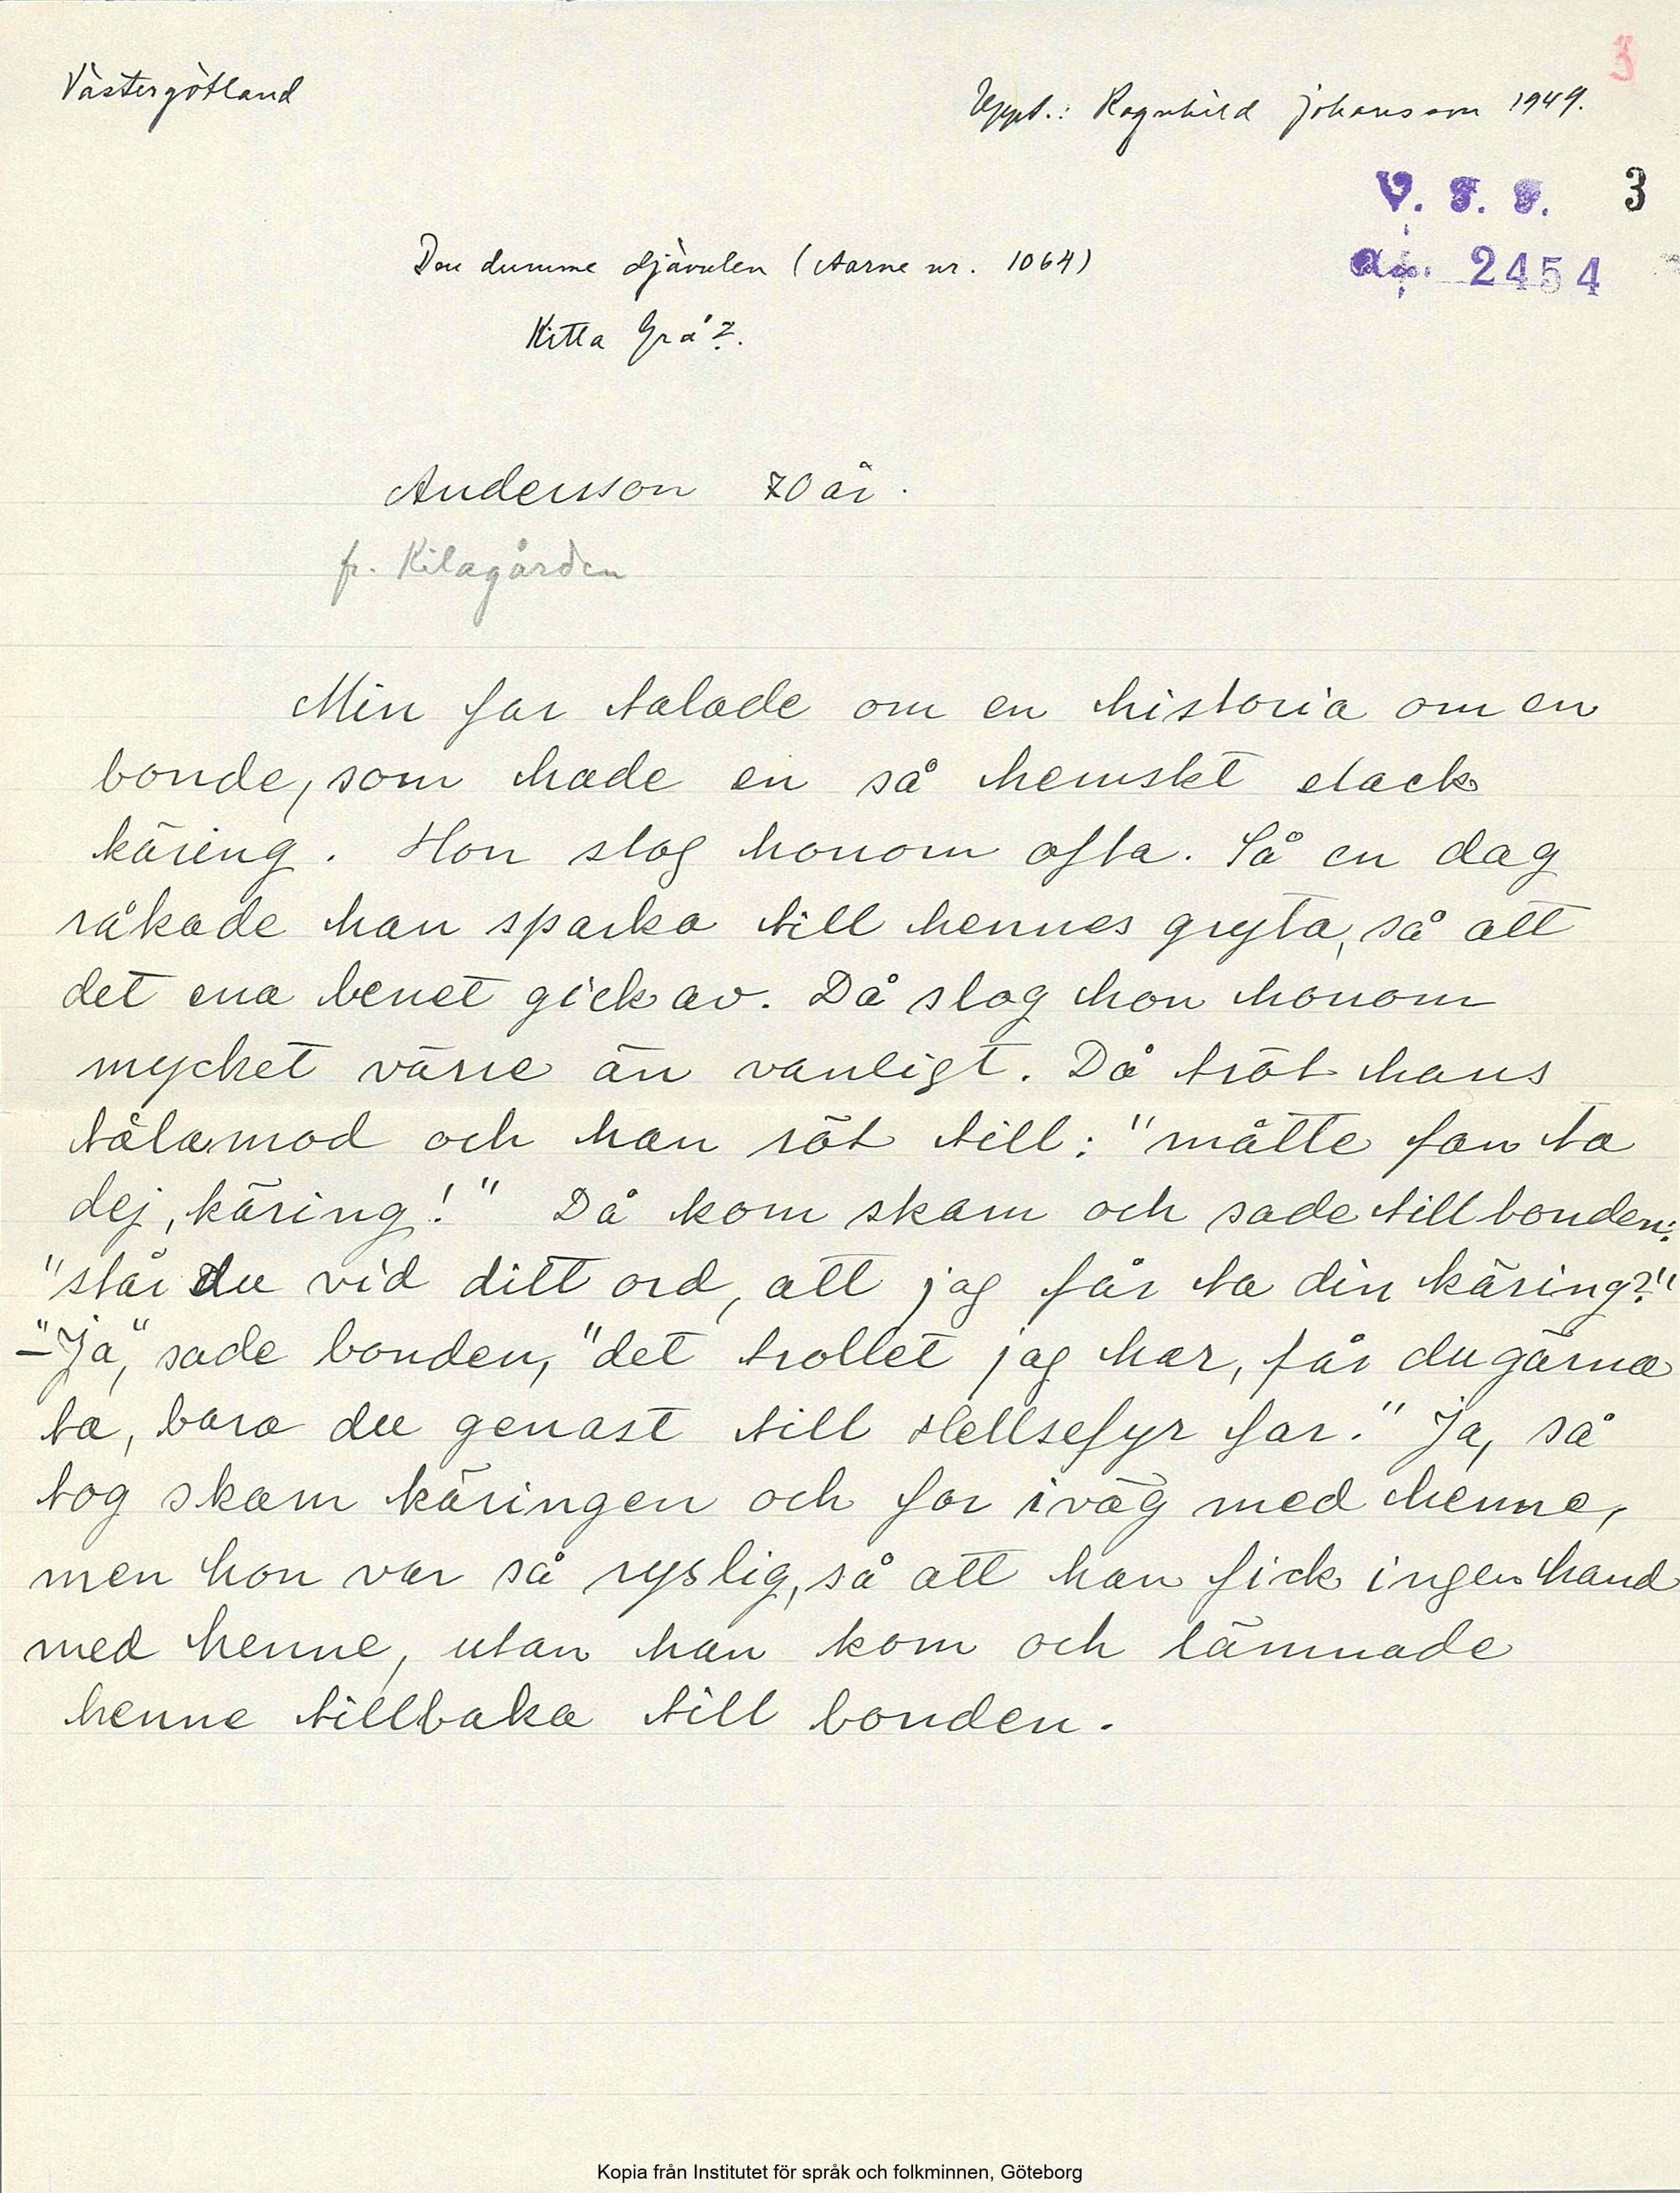 3
Västergötland
Uppt.: Ragnhild Johansson 1949.
V. F. F. 3
Den dumme djävulen (Aarne nr. 1064)
acc. 2454
Kitta Grå?.
Andersson 70 år.
fr. Kilagården
Min far talade om en historia om en
bonde, som hade en så hemskt elack
käring. Hon slog honom ofta. Så en dag
råkade han sparka till hennes gryta, så att
det ena benet gick av. Då slog hon honom
mycket värre än vanligt. Då tröt hans
tålamod och han röt till: "måtte fan ta
dej, käring!" Då kom skam och sade till bonden:
"står du vid ditt ord, att jag får ta din käring?"
–"Ja", sade bonden, "det trollet jag har, får du gärna
ta, bara du genast till Hellsefyr far." Ja, så
tog skam käringen och for iväg med henne,
men hon var så ryslig, så att han fick ingen hand
med henne, utan han kom och lämnade
henne tillbaka till bonden.
Kopia från Institutet för språk och folkminnen, Göteborg